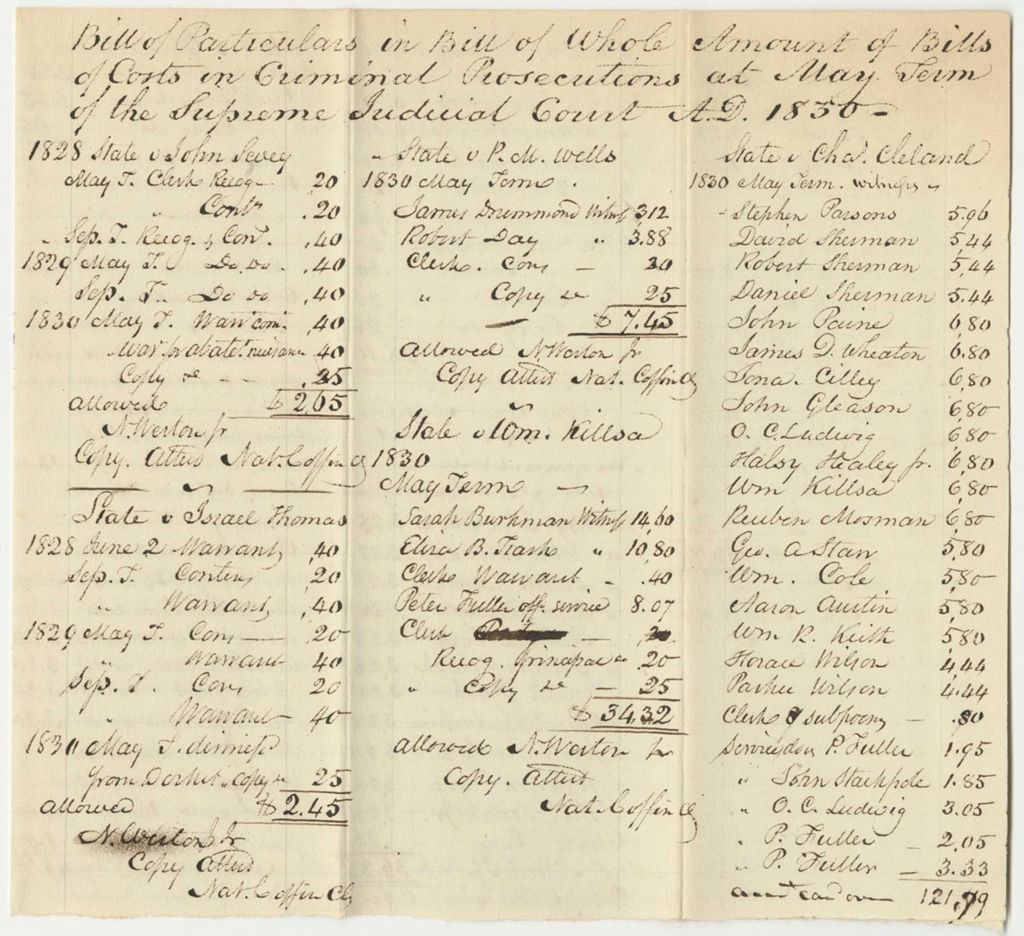 Bill of Particulars in Bill of Whole Amount of Bills
of Costs in Criminal Prosecutions at May Term
of the Supreme Judicial Court A.D. 1830 -
1828 State v John Sevey
May T. Clerk Recog - .20
" Cont .20
Sep. T. Recog & Con. .40
1829 May T. Do. Do. .40
Sep. T. Do Do .40
1830 May T. Warr .40
War. to abate nuisance .40
Copy &c - - .25
allowed $2.65
N. Weston Jr
Copy. Attest Nat. Coffin Clk
State v Israel Thomas
1828 June 2 Warrant, .40
Sep. T. Conten, 20
" Warrant, .40
1829 May T. Con, — 20
Warrant 40
Sep. T. Con, 20
" Warrant 40
1830 May T. dismissd
from Docket. Copy &c 25
allowed $2.45
N. Weston Jr
Copy Attest
Nat. Coffin Clk
" State v P. M. Wells
1830 May Term .
James Drummond Witness 3.12
Robert Day " 3.88
Clerk. Con, — 20
" Copy &c 25
$7.45
allowed N. Weston Jr
Copy Attest Nat. Coffin Clk
State v Wm. Killsa
1830
May Term —
Sarah Burkman Witness 14.60
Eliza B. Trask " 10.80
Clerk Warrant - .40
Peter Fuller off. service 8.07
Clerk —
Recog. principal &c 20
" Copy &c — 25
$34.32
allowed N. Weston Jr
Copy. Attest
Nat. Coffin Clk
State v Chas. Cleland
1830 May Term. witness -
Stephen Parsons 5.96
David Sherman 5.44
Robert Sherman 5.44
Daniel Sherman 5.44
John Paine 6.80
James D. Wheaton 6.80
Jona. Cilley 6.80
John Gleason 6.80
O. C. Ludwig 6.80
Halsy Healey Jr. 6.80
Wm Killsa 6.80
Reuben Mosman 6.80
Geo. A Starr 5.80
Wm. Cole 5.80
Aaron Austin 5.80
Wm R. Keith 5.80
Horace Wilson 4.44
Parker Wilson 4.44
Clerk 8 subpoens — .80
Service P. Fuller 1.95
" John Stackpole 1.85
" O. C. Ludwig 3.05
" P. Fuller — 2.05
" P. Fuller — 3.33
121.79